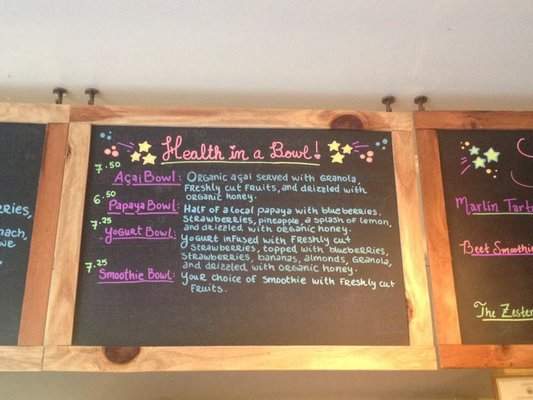 Health in a Bowl!
7.50
Açai Bowl: Organic açai served with granola,
freshly cut fruits, and drizzled with
organic honey.
6.50
Papaya Bowl: Half of a local papaya with blueberries,
strawberries, pineapple, a splash of lemon,
and drizzled with organic honey.
7.25
Yogurt Bowl: Yogurt infused with freshly cut
strawberries, topped with blueberries,
strawberries, bananas, almonds, granola,
and drizzled with organic honey.
7.25
Smoothie Bowl: Your choice of smoothie with freshly cut
fruits.
Marlin
Beet Smoothie
The